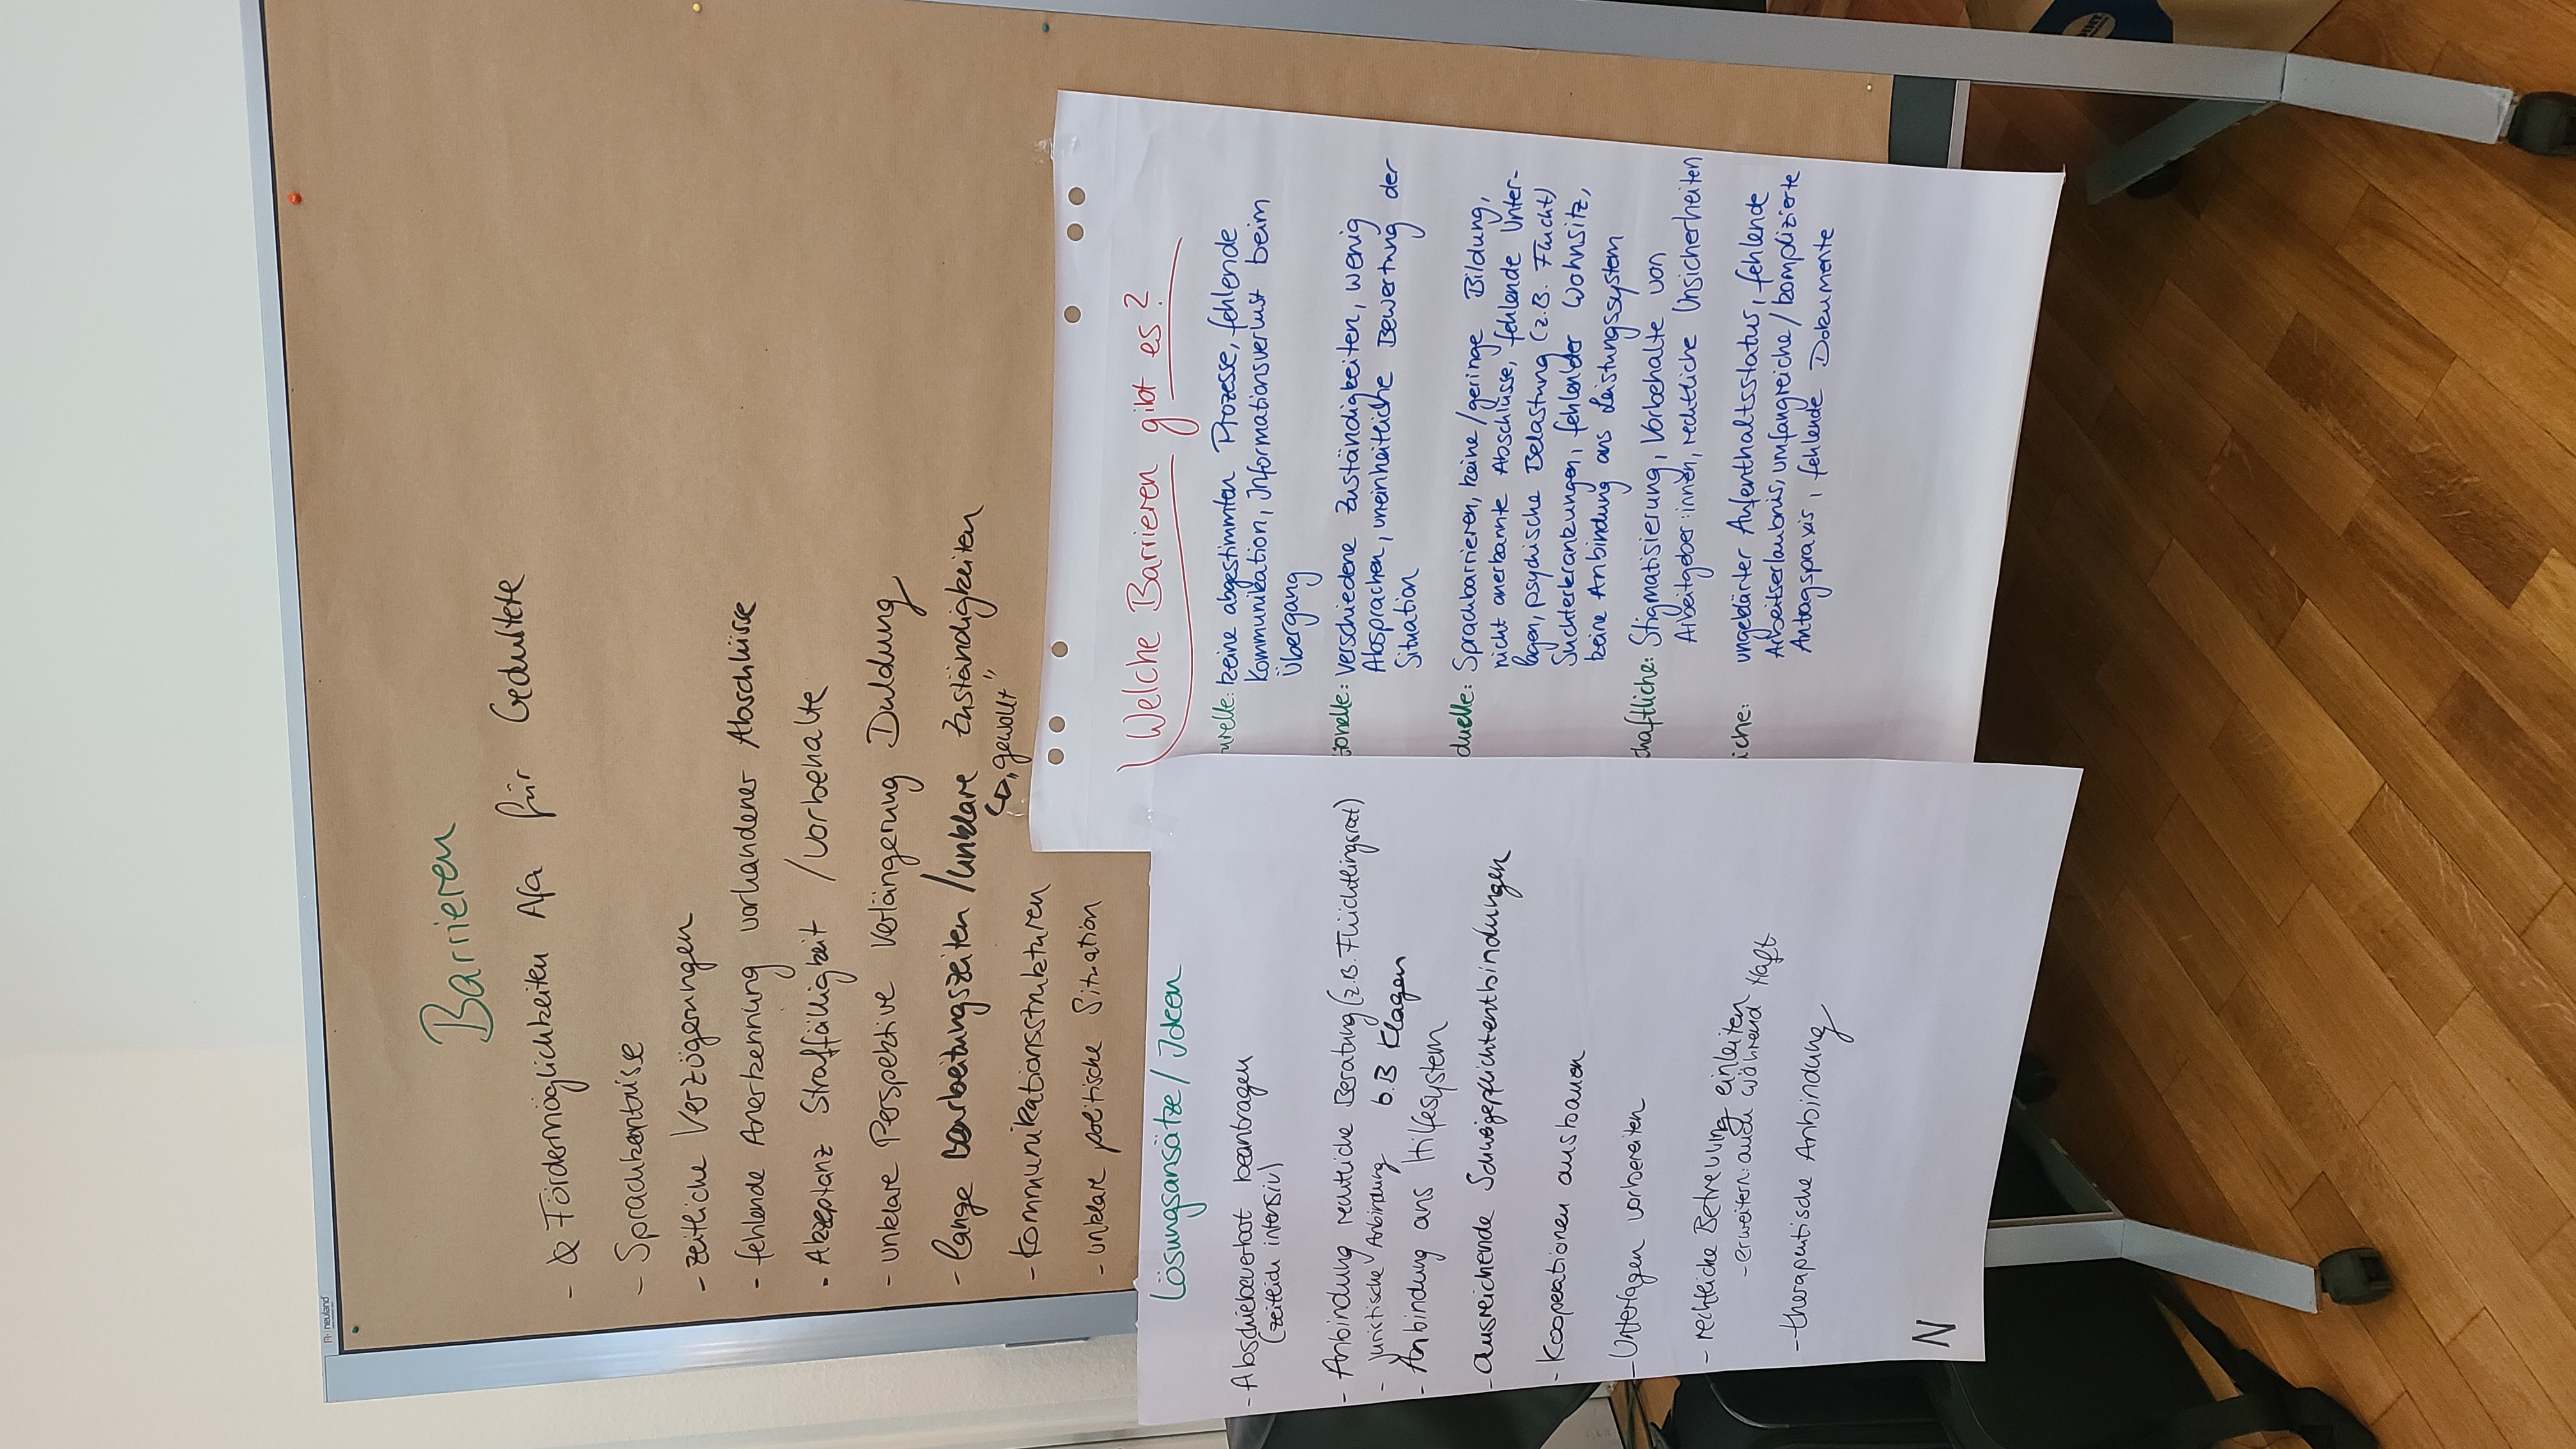 Barrieren
- Fördermöglichkeiten Afa für Geduldete
- Sprachkentnisse
- zeitliche Verzögerungen
- fehlende Anerkennung vorhandener Abschlüsse
- Akzeptanz Straffälligkeit / Vorbehalte
- unklare Perspektive Verlängerung Duldung
- lange Bearbeitungszeiten / unklare Zuständigkeiten
↳ „gewollt"
- Kommunikationsstrukturen
- unklare politische Situation
Welche Barrieren gibt es?
urelle: keine abgestimmten Prozesse, fehlende
Kommunikation, Informationsverlust beim
Übergang
ionelle: Verschiedene Zuständigkeiten, wenig
Absprachen, uneinheitliche Bewertung der
Situation
duelle: Sprachbarrieren, keine/geringe Bildung,
nicht anerkannte Abschlüsse, fehlende Unter-
lagen, psychische Belastung (z.B. Flucht)
Suchterkrankungen, fehlender Wohnsitz,
keine Anbindung ans Leistungssystem
haftliche: Stigmatisierung, Vorbehalte von
Arbeitgeber:innen, rechtliche Unsicherheiten
iche: ungeklärter Aufenthaltsstatus, fehlende
Arbeitserlaubnis, umfangreiche/komplizierte
Antragspraxis, fehlende Dokumente
Lösungsansätze/Ideen
- Abschiebeverbot beantragen
(zeitlich intensiv)
- Anbindung rechtliche Beratung (z.B. Flüchtlingsrat)
- juristische Anbindung b.B Klagen
- Anbindung ans Hilfesystem
- ausreichende Schweigepflichtentbindungen
- Kooperationen ausbauen
- Unterlagen vorbereiten
- rechtliche Betreuung einleiten
- erweitern: auch während Haft
- therapeutische Anbindung
N
neuland